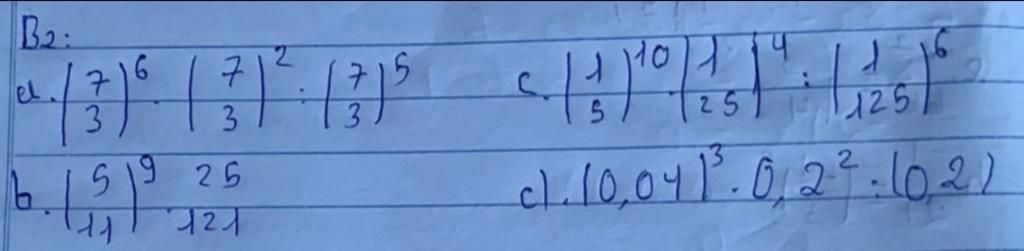 B2:
a. (7/3)^6 . (7/3)^2 : (7/3)^5
c. (1/5)^10 . (1/25)^4 : (1/125)^6
b. (5/11)^9 . 25/121
d. (0,04)^3 . 0,2^2 : (0,2)